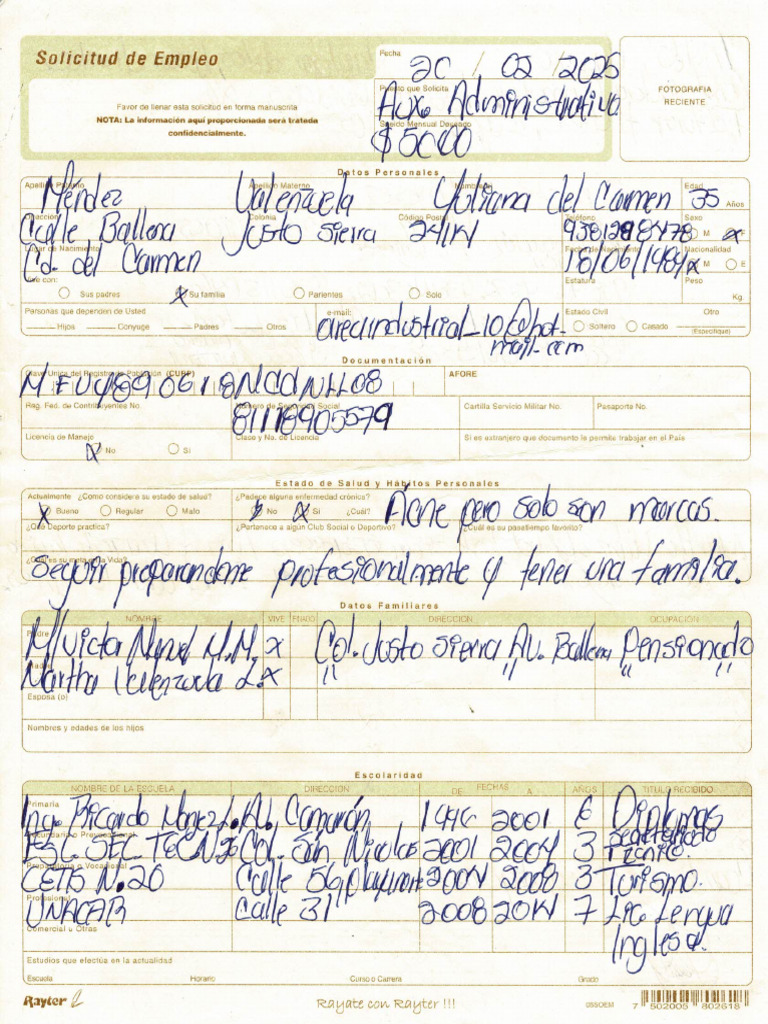 Solicitud de Empleo
Favor de llenar esta solicitud en forma manuscrita
NOTA: La información aquí proporcionada será tratada
confidencialmente.
Fecha
20 / 02 / 2025
Puesto que Solicita
Aux. Administrativa
Sueldo Mensual Deseado
$5000
FOTOGRAFIA
RECIENTE
Datos Personales
Apellido Paterno Apellido Materno Nombre(s) Edad
Méndez Valenzuela Yuliana del Carmen 35 Años
Dirección Colonia Código Postal Teléfono Sexo
Calle Ballena Justo Sierra 24114 9381298478 M x F
Lugar de Nacimiento Fecha de Nacimiento Nacionalidad
Cd. del Carmen 18/06/1989 x M E
Vive con: Estatura Peso
Sus padres x Su familia Parientes Solo Kg
Personas que dependen de Usted e-mail: Estado Civil Otro
Hijos Conyuge Padres Otros Soltero Casado (Especifique)
areaindustrial_10@hot-
mail.com
Documentación
Clave Única del Registro de Población (CURP) AFORE
Reg. Fed. de Contribuyentes No. Número de Seguridad Social Cartilla Servicio Militar No. Pasaporte No.
81118905579
Licencia de Manejo Clase y No. de Licencia Si es extranjero que documento le permite trabajar en el País
x No Si
Estado de Salud y Hábitos Personales
Actualmente ¿Cómo considera su estado de salud? ¿Padece alguna enfermedad crónica?
x Bueno Regular Malo No x Si ¿Cuál? Acne pero solo son marcas.
¿Qué Deporte practica? ¿Pertenece a algún Club Social o Deportivo? ¿Cuál es su pasatiempo favorito?
¿Cuál es su meta en la Vida?
Seguir preparandome profesionalmente y tener una familia.
Datos Familiares
NOMBRE VIVE FINADO DIRECCION OCUPACIÓN
Padre
Victor Manuel M.M. x Col. Justo Sierra Av. Ballena Pensionado
Madre
Martha Valenzuela L. x " " " "
Esposa (o)
Nombres y edades de los hijos
Escolaridad
NOMBRE DE LA ESCUELA DIRECCION DE FECHAS A AÑOS TITULO RECIBIDO
Primaria
Ing. Ricardo Av. Camarón 1996 2001 6 Diplomas
Secundaria o Prevocacional
ESC. SEC. TECN Col. San Nicolas 2001 2004 3 Secretariado
Preparatoria o Vocacional
CETIS N.20 Calle 56 playa norte 2004 2008 3 Turismo.
Profesional
UNACAR Calle 31 2008 2014 7 Lic. Lengua
Inglesa.
Comercial u Otras
Estudios que efectúa en la actualidad
Escuela Horario Curso o Carrera Grado
Rayter Rayate con Rayter !!! 055OEM 7 502005 802618